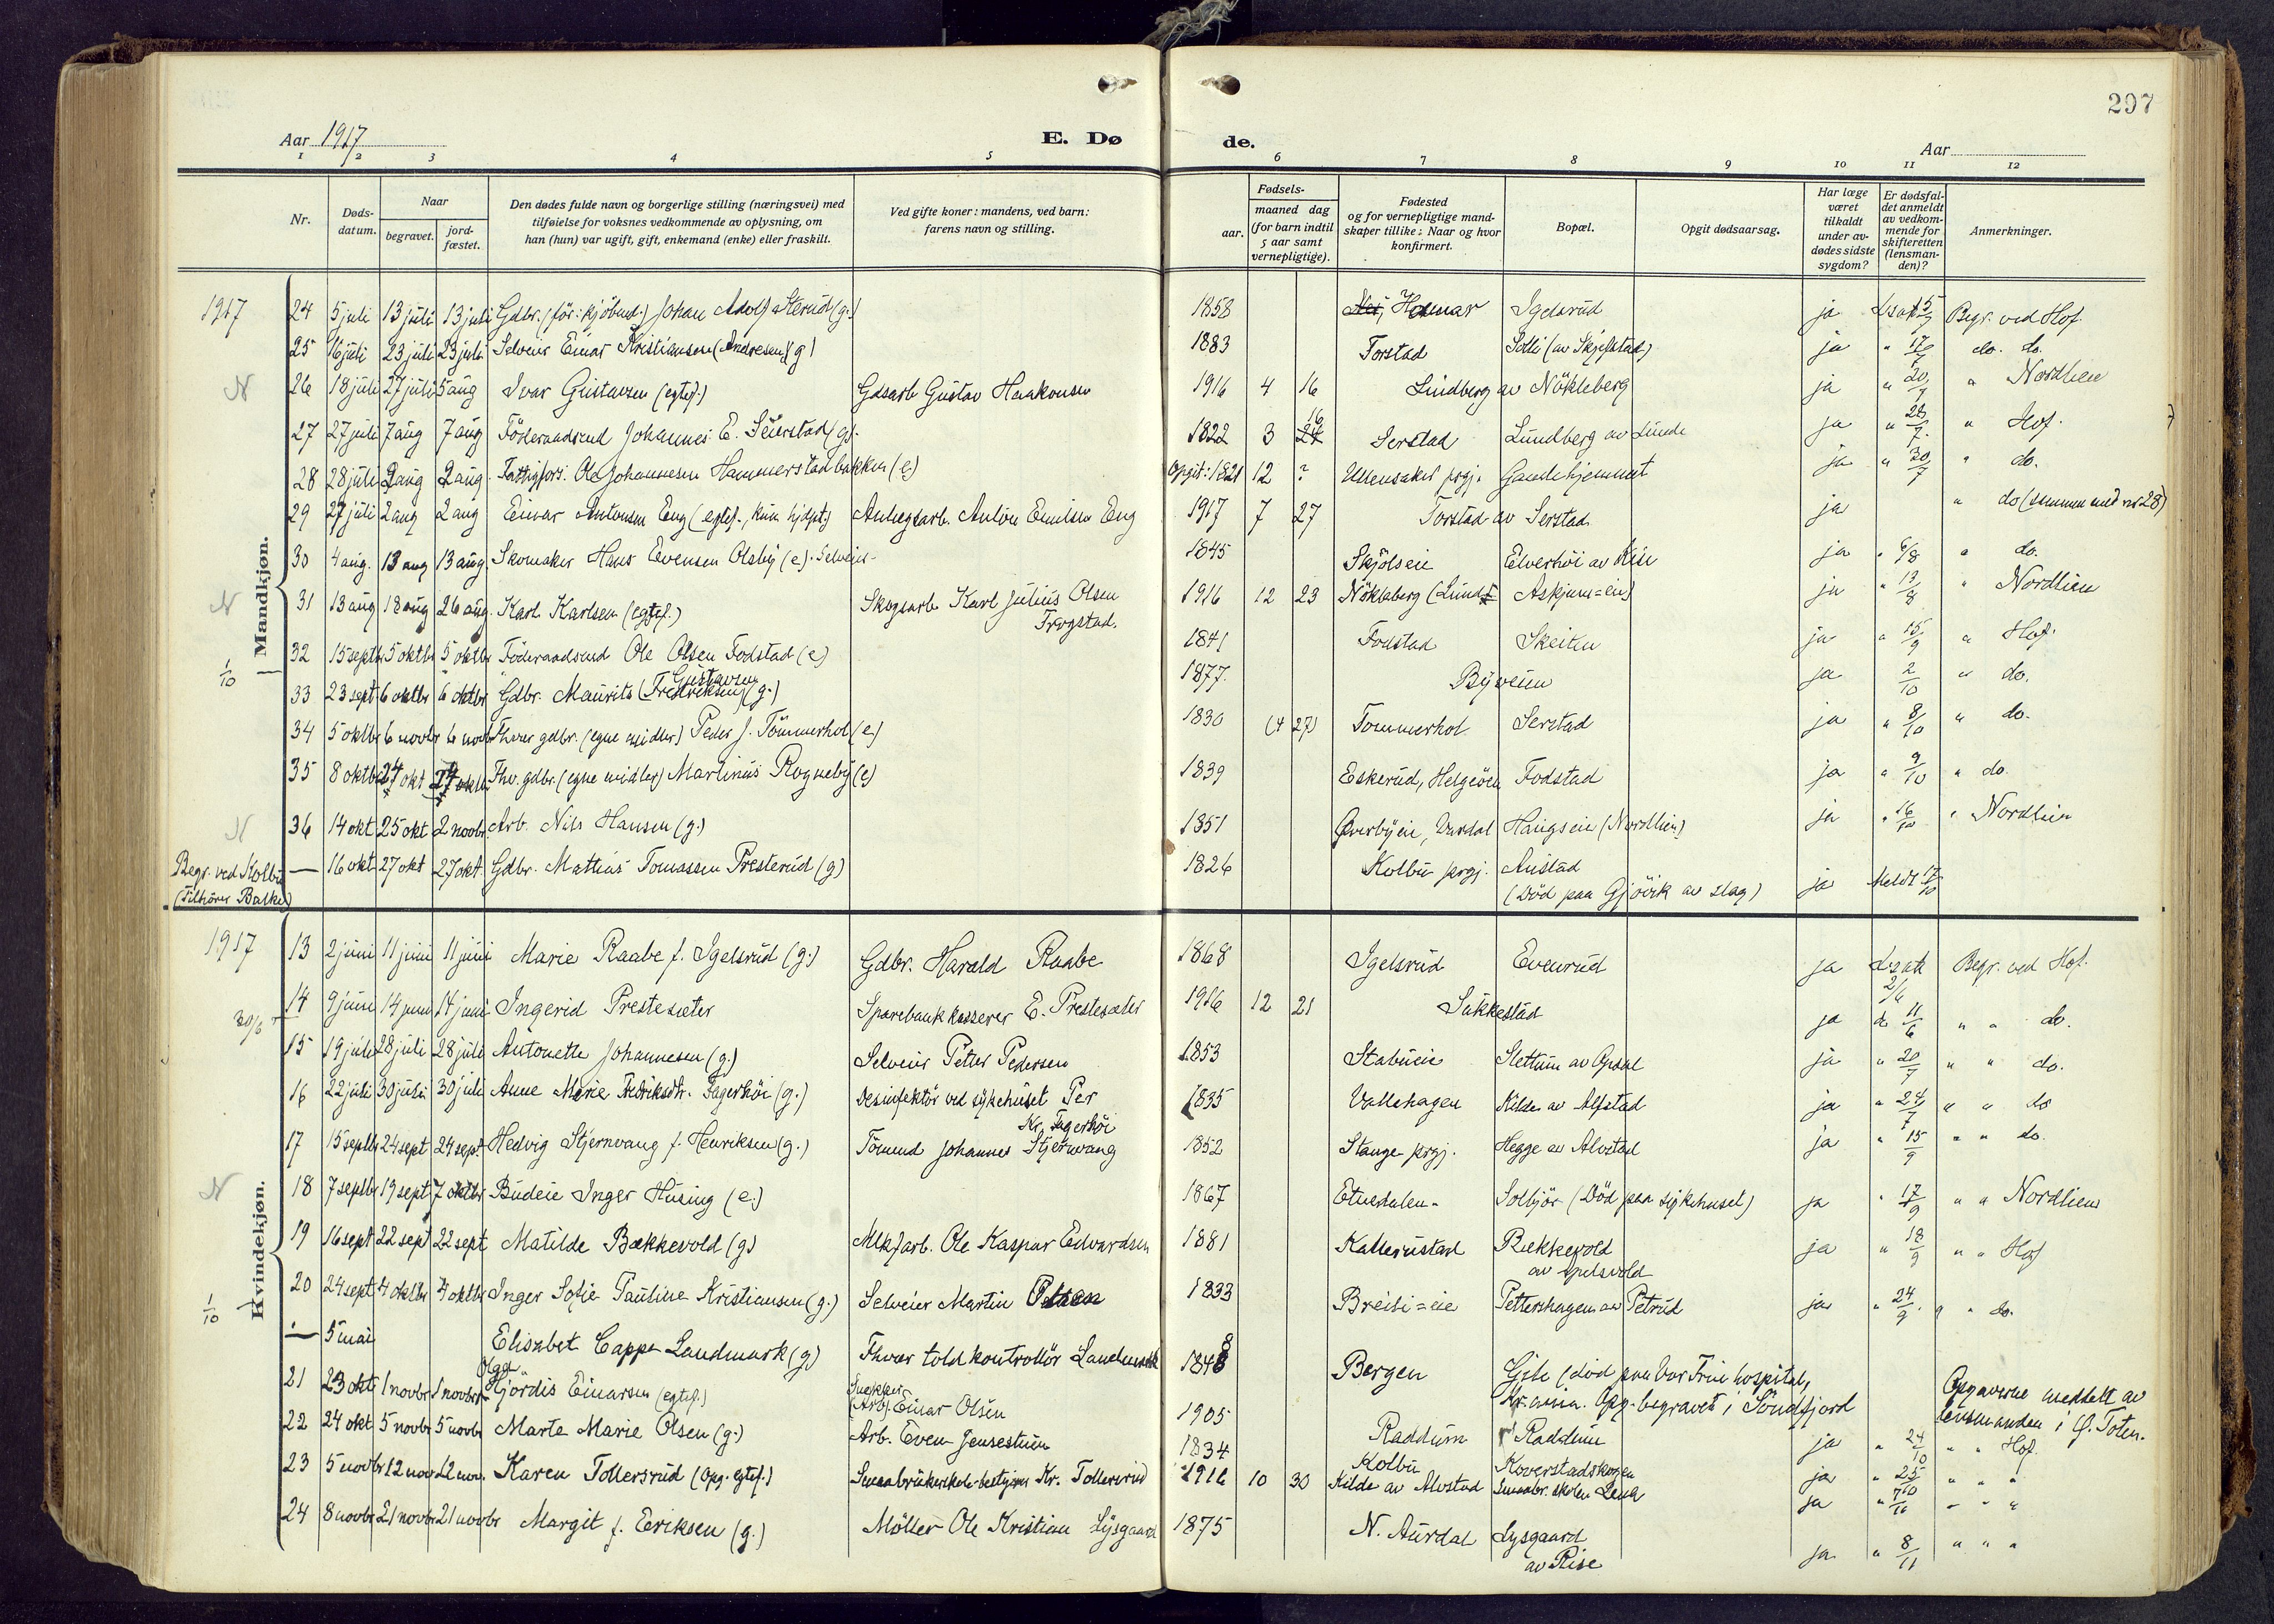 297
Aar 1917
E. Dø
de.
Aar
1 2 3 4 5 6 7 8 9 10 11 12
Nr.
Døds-datum.
Naar
begravet.
jord-fæstet.
Den dødes fulde navn og borgerlige stilling (næringsvei) med
tilføielse for voksnes vedkommende av oplysning, om
han (hun) var ugift, gift, enkemand (enke) eller fraskilt.
Ved gifte koner: mandens, ved barn:
farens navn og stilling.
Fødsels-
aar.
maaned dag
(for barn indtil
5 aar samt
vernepligtige).
Fødested
og for vernepligtige mand-
skaper tillike: Naar og hvor
konfirmert.
Bopæl.
Opgit dødsaarsag.
Har læge
været
tilkaldt
under av-
dødes sidste
sygdom?
Er dødsfal-
det anmeldt
av vedkom-
mende for
skifteretten
(lensman-
den)?
Anmerkninger.
Mandkjøn.
1917 24 5 juli 13 juli 13 juli Gdbr. (för: kjöbmd.) Johan Adolf Sterud (g.) 1858 Hamar Igelsrud ja Begr. ved Hof.
25 16 juli 23 juli 23 juli Selveier Einar Kristiansen (Andresen) (g) 1883 Forstad Sotli (av Skjelstad) ja " 17/7 do. do.
N 26 18 juli 27 juli 5 aug Ivar Gustavsen (egtef.) Gdsarb Gustav Haakonsen 1916 4 16 Lindberg av Nökleberg ja " 20/7 " Nordlien
27 27 juli 7 aug 7 aug Föderaadsmd Johannes E. Seierstad (g). 1822 3 16 Serstad Lundberg av Lunde ja " 28/7. " Hof.
28 28 juli 2 aug 2 aug. Fattigfors. Ole Johannesen Hammerstadbakken (e) Opgit: 1821 12 ? Ullensaker prgj. Gamlehjemmet ja " 30/7 " do.
29 27 juli 2 aug 2 aug Einar Antonsen Eng (egtef., hjdpt.) Anlegsarb. Anton Emilsen Eng 1917 7 27 Forstad av Serstad ja " do (sammen med nr 28)
30 4 aug. 13 aug 13 aug Skomaker Hans Evensen Olsby (e). Selveier- 1845 Skjölseie Elverhöi av Rise ja " 6/8 " do.
N 31 13 aug 18 aug 26 aug. Karl Karlsen (egtef.) Skogsarb. Karl Julius Olsen Frogstad. 1916 12 23 Nökleberg ( Askjums=eie) ja " 13/8 " Nordlien
32 15 septbr 5 oktbr 5 oktbr Föderaadsmd Ole Olsen Fodstad (e) 1841 Fodstad Skeiten ja " 15/9 " Hof.
1/10 33 23 sept 6 oktbr 6 oktbr Gdbr. Maurits (Fredriksen) Gustavsen (g.) 1877. Byveien ja 2/10 " do.
34 5 oktbr 6 novbr 6 novbr Fhvær gdbr. (egne midler) Peder J. Tömmerhol (e) 1830 (4 27) Tömmerhol Serstad ja " 8/10 " do.
35 8 oktbr 24 okt 24 oktbr Fhv. gdbr. (egne midler) Martinus Rogneby (e) 1839 Eskerud, Helgöen Fodstad ja " 9/10 " do.
N 36 14 okt 25 okt 2 novbr. Arb. Nils Hansen (g.) 1851 Överbyeie, Vardal Haugseie (Nordlien) ja " 16/10 " Nordlien
Begr. ved Kolbu
(Tilhörer Balke) — 16 okt 27 okt 27 okt. Gdbr. Mattias Tomassen Presterud (g) 1826 Kolbu prgj. Austad
(Död paa Gjövik av slag) ja Meldt 17/10
Kvindekjøn.
1917 13 2 juni 11 juni 11 juni Marie Raabe f. Igelsrud (g.) Gdbr. Harald Raabe 1868 Igelsrud Evenrud ja Begr. ved Hof.
30/6 14 9 juni 14 juni 14 juni Ingerid Prestesæter Sparebankkasserer E. Prestesæter 1916 12 21 Sukkestad ja do 11/6 " " do.
15 19 juli 28 juli 28 juli Antonette Johannesen (g.) Selveier Petter Pedersen 1853 Stabueie Slettum av Opdal ja " 20/7 " " do.
16 22 juli 30 juli 30 juli Anne Marie Fredriksdtr. Fagerhöi (g.) Desinfektör ved sykehuset Per Kr. Fagerhöi 1835 Vallehagen Kilde av Alfstad ja " 24/7 " " do
17 15 septbr 24 sept 24 sept Hedvig Stjernvang f. Henriksen (g.) Tömmd Johannes Stjernvang 1852 Stange prgj. Hegge av Alvstad ja " 15/9 " " do.
N 18 7 septbr 19 sept 7 oktbr Budeie Inger Husing (e.) 1867 Etnedalen. Solbjör (Död paa sykehuset) ja " 17/9 " " Nordlien
19 16 sept 22 sept 22 sept Matilde Bækkevold (g) Mekarb. Ole Kaspar Edvardsen 1881 Kallerustad Bækkevold
av Spelsvold ja " 18/9 " " Hof
1/10 20 24 sept 4 oktbr 4 oktbr Inger Sofie Pauline Kristiansen (g.) Selveier Martin 1833 Breili=eie Pettershagen av Petrud ja " 24/9. " " do.
— 5 mai Elisabet Cappe Landmark (g) Fhvær toldkontrollör Landmark 1848 Bergen Gjile (död paa Vor Frue hospital,
Kr.ania. Opg. begravet i Söndfjord Opgaverne meddelt av
lensmanden i Ø. Toten.
21 23 okt 1 novbr 1 novbr Olga Hjördis Einarsen (egtef.) Snekker (Arb). Einar Olsen 1905 Raddum Raddum ja " 24/10 " " Hof.
22 24 okt 5 novbr 5 novbr Marte Marie Olsen (g.) Arb. Even Jensestuen 1834 Kolbu Koverstadskogen ja " 25/10 " " "
23 5 novbr 12 nov 12 nov. Karen Tollersrud (Opg. egtef.) Smaabrukerskole-bestyrer Kr. Tollersrud 1916 10 30 Kilde av Alvstad Smaabr. skolen Lena ja " " " "
24 8 novbr 21 novbr 21 novbr Margit f. Eriksen (g.) Möller Ole Kristian Lysgaard 1875 N. Aurdal Lysgaard
av Rise ja " 8/11 " " "